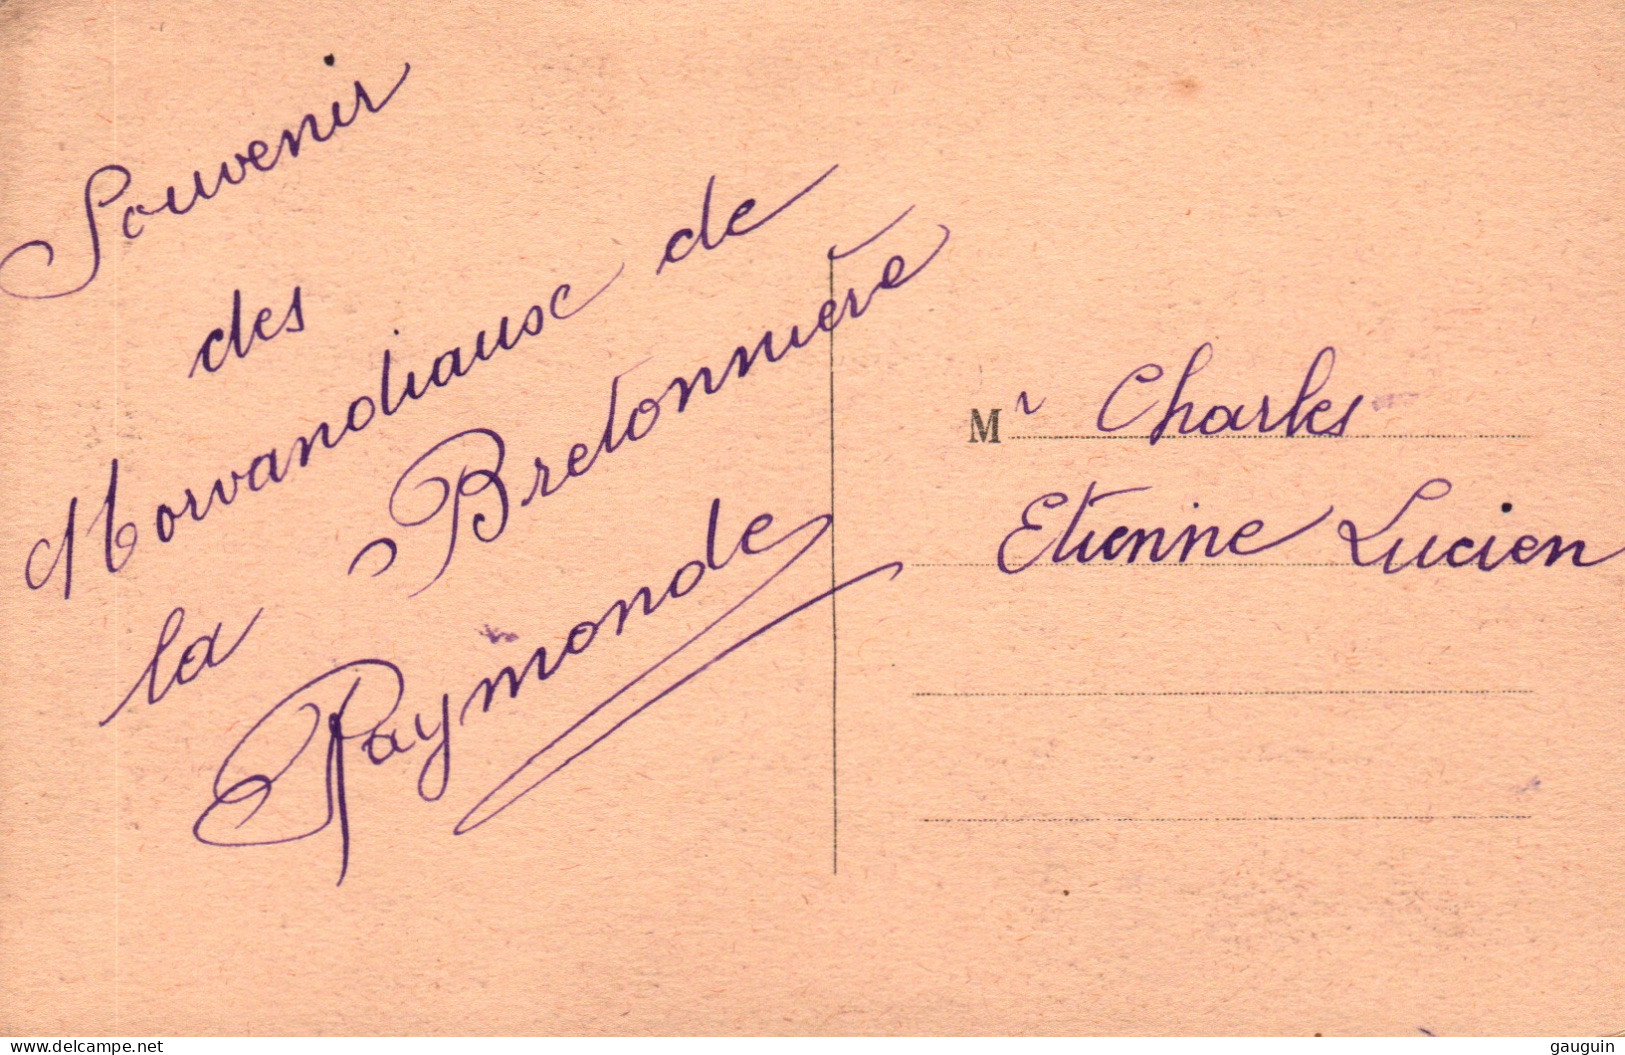 Souvenir
des
Morvandiaux de
la Bretonnière
Raymonde
Mr Charles
Etienne Lucien
www.delcampe.net
gauguin